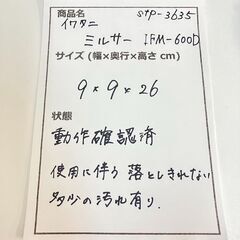 商品名
stp-3635
イワタニ
ミルサー IFM-600D
サイズ (幅×奥行×高さ cm)
9 × 9 × 26
状態
動作確認済
使用に伴う落としきれない
多少の汚れ有り.